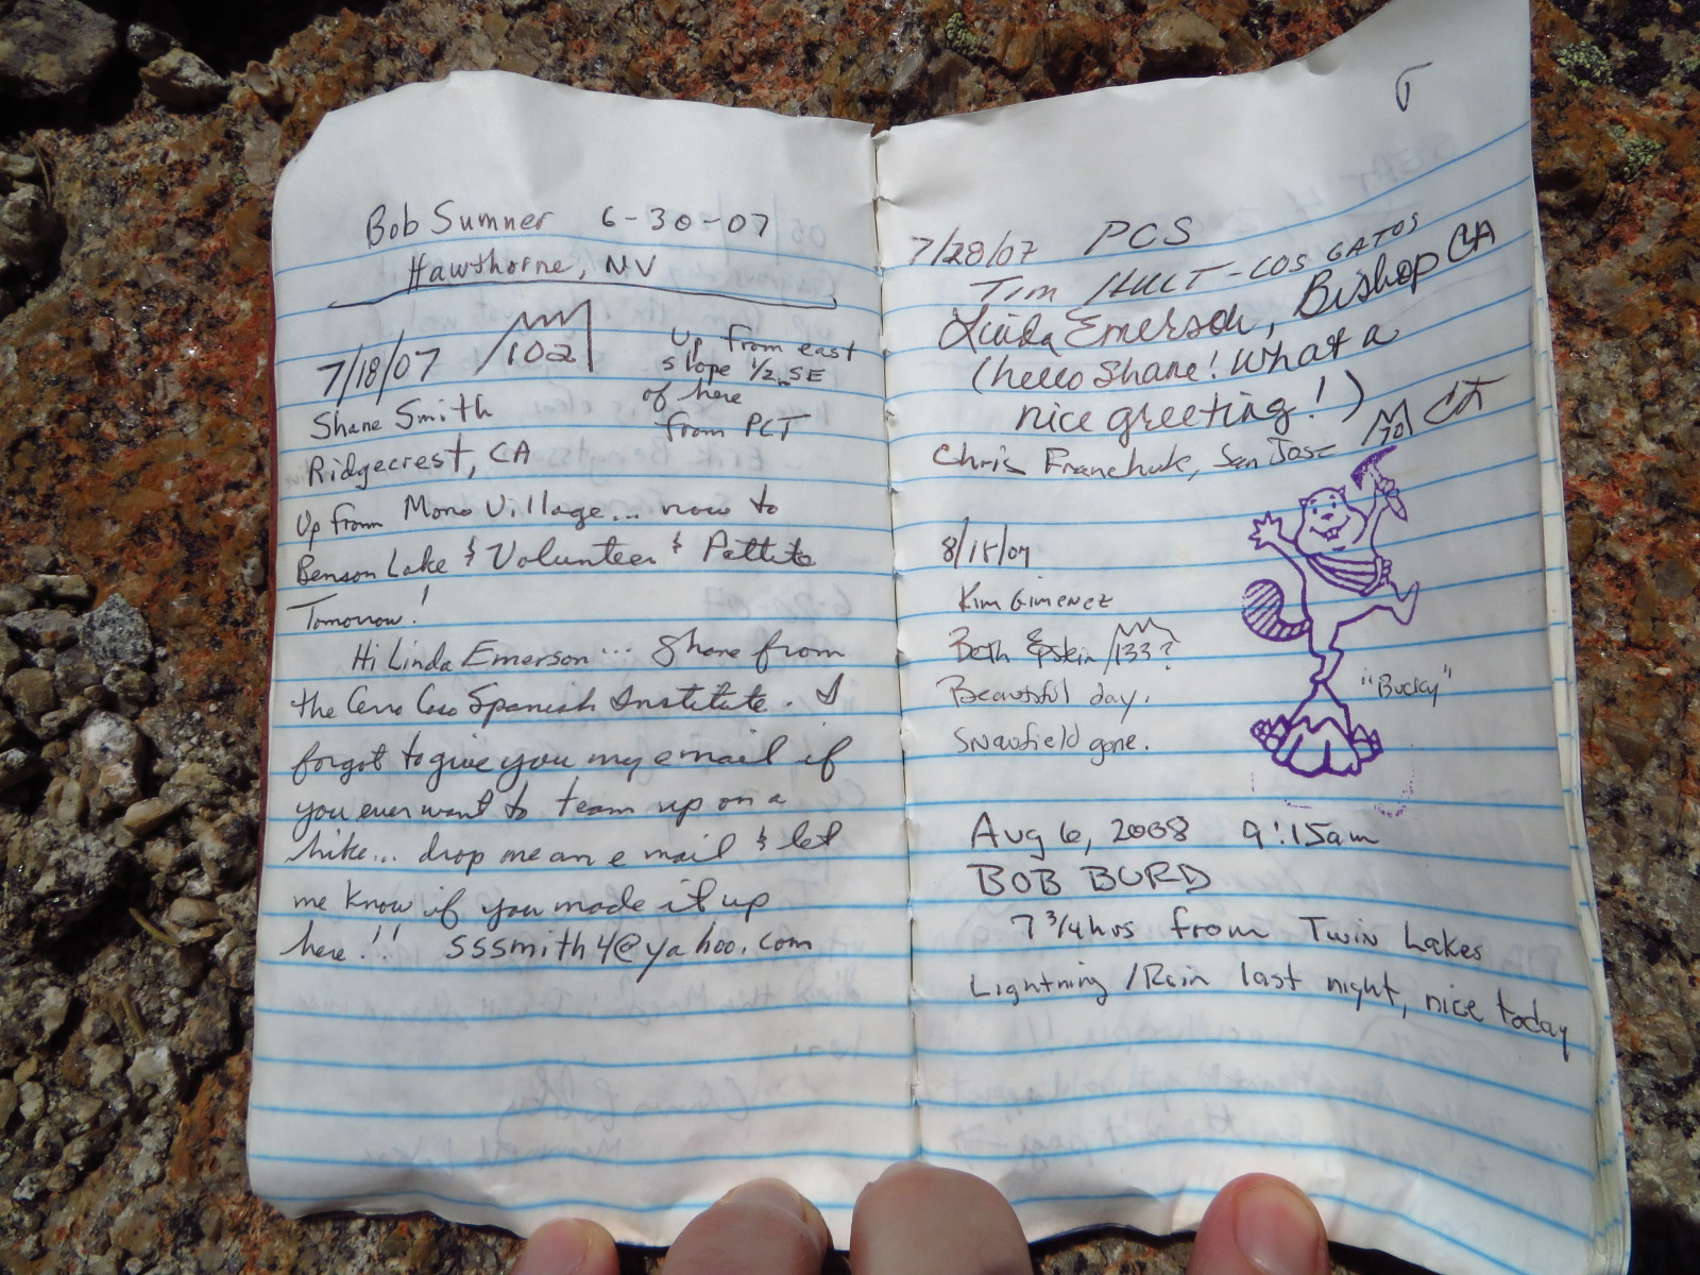 Bob Sumner 6-30-07
Hawthorne, NV
7/18/07 102
Up from east
slope 1/2 SE
of here
from PCT
Shane Smith
Ridgecrest, CA
Up from Mono Village... now to
Benson Lake & Volunteer & Pettite
Tomorrow!
Hi Linda Emerson... Shane from
the Cerro Coso Spanish Institute. I
forgot to give you my email if
you ever want to team up on a
hike... drop me an e mail & let
me know if you made it up
here!! sssmith4@yahoo.com
7/28/07 PCS
Tim Hult - Los Gatos
Linda Emerson, Bishop CA
(hello Shane! What a
nice greeting!)
Chris Franchuk, San Jose 70 CA
Kim Gimenez
Beth Epstein 133?
Beautiful day.
Snowfield gone.
"Bucky"
Aug 6, 2008 9:15am
BOB BURD
7 3/4 hrs from Twin Lakes
Lightning/Rain last night, nice today